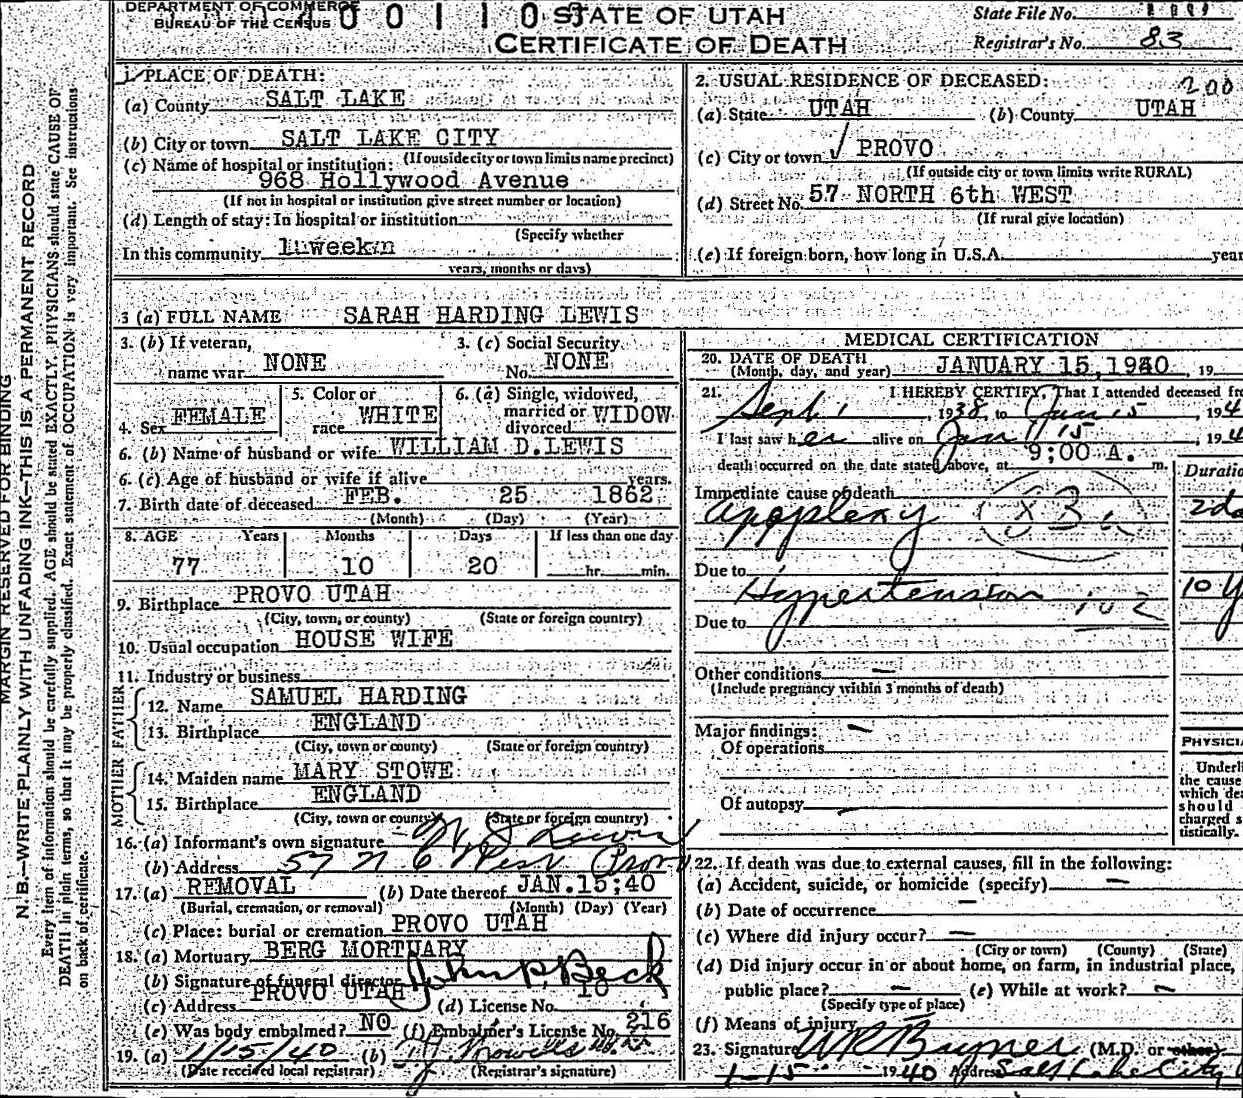 DEPARTMENT OF COMMERCE
BUREAU OF THE CENSUS
STATE OF UTAH
CERTIFICATE OF DEATH
State File No.
Registrar's No. 83
1. PLACE OF DEATH:
(a) County SALT LAKE
(b) City or town SALT LAKE CITY
(If outside city or town limits name precinct)
(c) Name of hospital or institution:
968 Hollywood Avenue
(If not in hospital or institution give street number or location)
(d) Length of stay: In hospital or institution
(Specify whether
In this community 1 week
years, months or days)
2. USUAL RESIDENCE OF DECEASED:
200
(a) State UTAH (b) County UTAH
(c) City or town PROVO
(If outside city or town limits write RURAL)
(d) Street No. 57 NORTH 6th WEST
(If rural give location)
(e) If foreign born, how long in U.S.A. year
3 (a) FULL NAME SARAH HARDING LEWIS
3. (b) If veteran, name war NONE
3. (c) Social Security No. NONE
4. Sex FEMALE
5. Color or race WHITE
6. (a) Single, widowed, married or divorced WIDOW
6. (b) Name of husband or wife WILLIAM D.LEWIS
6. (c) Age of husband or wife if alive years.
7. Birth date of deceased FEB. 25 1862
(Month) (Day) (Year)
8. AGE Years Months Days If less than one day
77 10 20 hr. min.
9. Birthplace PROVO UTAH
(City, town, or county) (State or foreign country)
10. Usual occupation HOUSE WIFE
11. Industry or business
FATHER
12. Name SAMUEL HARDING
13. Birthplace ENGLAND
(City, town or county) (State or foreign country)
MOTHER
14. Maiden name MARY STOWE
15. Birthplace ENGLAND
(City, town or county) (State or foreign country)
16. (a) Informant's own signature Lewis
(b) Address 57 N. 6 West Provo
17. (a) REMOVAL (b) Date thereof JAN.15;40
(Burial, cremation, or removal) (Month) (Day) (Year)
(c) Place: burial or cremation PROVO UTAH
18. (a) Mortuary BERG MORTUARY
(b) Signature of funeral director
(c) Address PROVO UTAH (d) License No. 10
(e) Was body embalmed? NO (f) Embalmer's License No. 216
19. (a) 1/15/40 (b)
(Date received local registrar) (Registrar's signature)
MEDICAL CERTIFICATION
20. DATE OF DEATH
(Month, day, and year) JANUARY 15,1940, 19
21. I HEREBY CERTIFY, That I attended deceased fro
Sept 1, 1938, to Jan 15, 194
I last saw her alive on Jan 15, 194
death occurred on the date stated above, at 9;00 A. m.
Duratio
Immediate cause of death
Apoplexy 2 da
Due to
Hypertension 102 10 y
Due to
Other conditions —
(Include pregnancy within 3 months of death)
Major findings: —
Of operations
PHYSICIA
Of autopsy
Underli
the cause
which dea
should
charged s
tistically.
22. If death was due to external causes, fill in the following:
(a) Accident, suicide, or homicide (specify) —
(b) Date of occurrence —
(c) Where did injury occur? —
(City or town) (County) (State)
(d) Did injury occur in or about home, on farm, in industrial place,
public place? — (e) While at work? —
(Specify type of place)
(f) Means of injury —
23. Signature (M.D. or other)
1-15 1940 Address Salt Lake City
MARGIN RESERVED FOR BINDING
N. B.—WRITE PLAINLY WITH UNFADING INK—THIS IS A PERMANENT RECORD
Every item of information should be carefully supplied. AGE should be stated EXACTLY. PHYSICIANS should state CAUSE OF
DEATH in plain terms, so that it may be properly classified. Exact statement of OCCUPATION is very important. See instructions
on back of certificate.